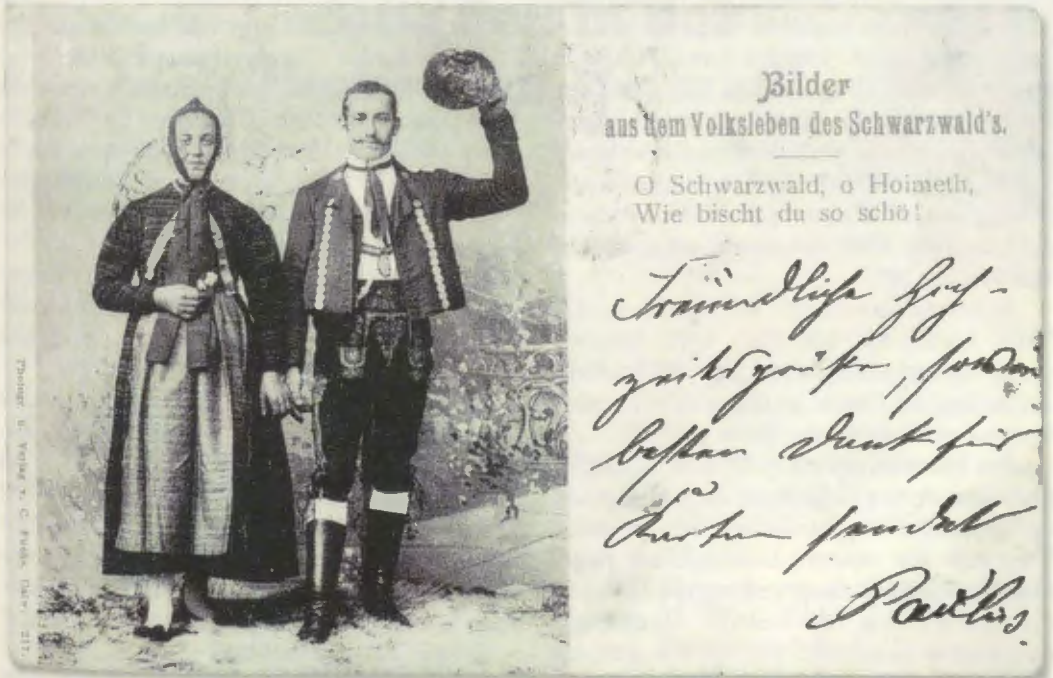 Bilder
aus dem Volksleben des Schwarzwald's.
O Schwarzwald, o Hoimeth,
Wie bischt du so schö!
Freundliche Hoch-
zeitsgrüße, sowie
besten Dank für
Karten sendet
Paulus.
Photogr. u. Verlag v. C. Fuchs, Calw. 217.